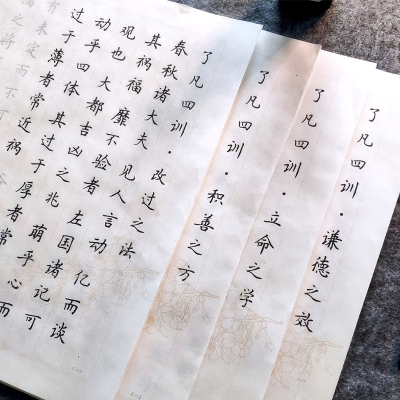 了凡四训·谦德之效
了凡四训·立命之学
了凡四训·积善之方
了凡四训·改过之法
春秋诸大夫见人言动亿而谈
其祸福靡不验者左国诸记可
观也大都吉凶之兆萌乎心而
动乎四体其过于厚者常
过于薄者常近祸
有未定而不可
之将